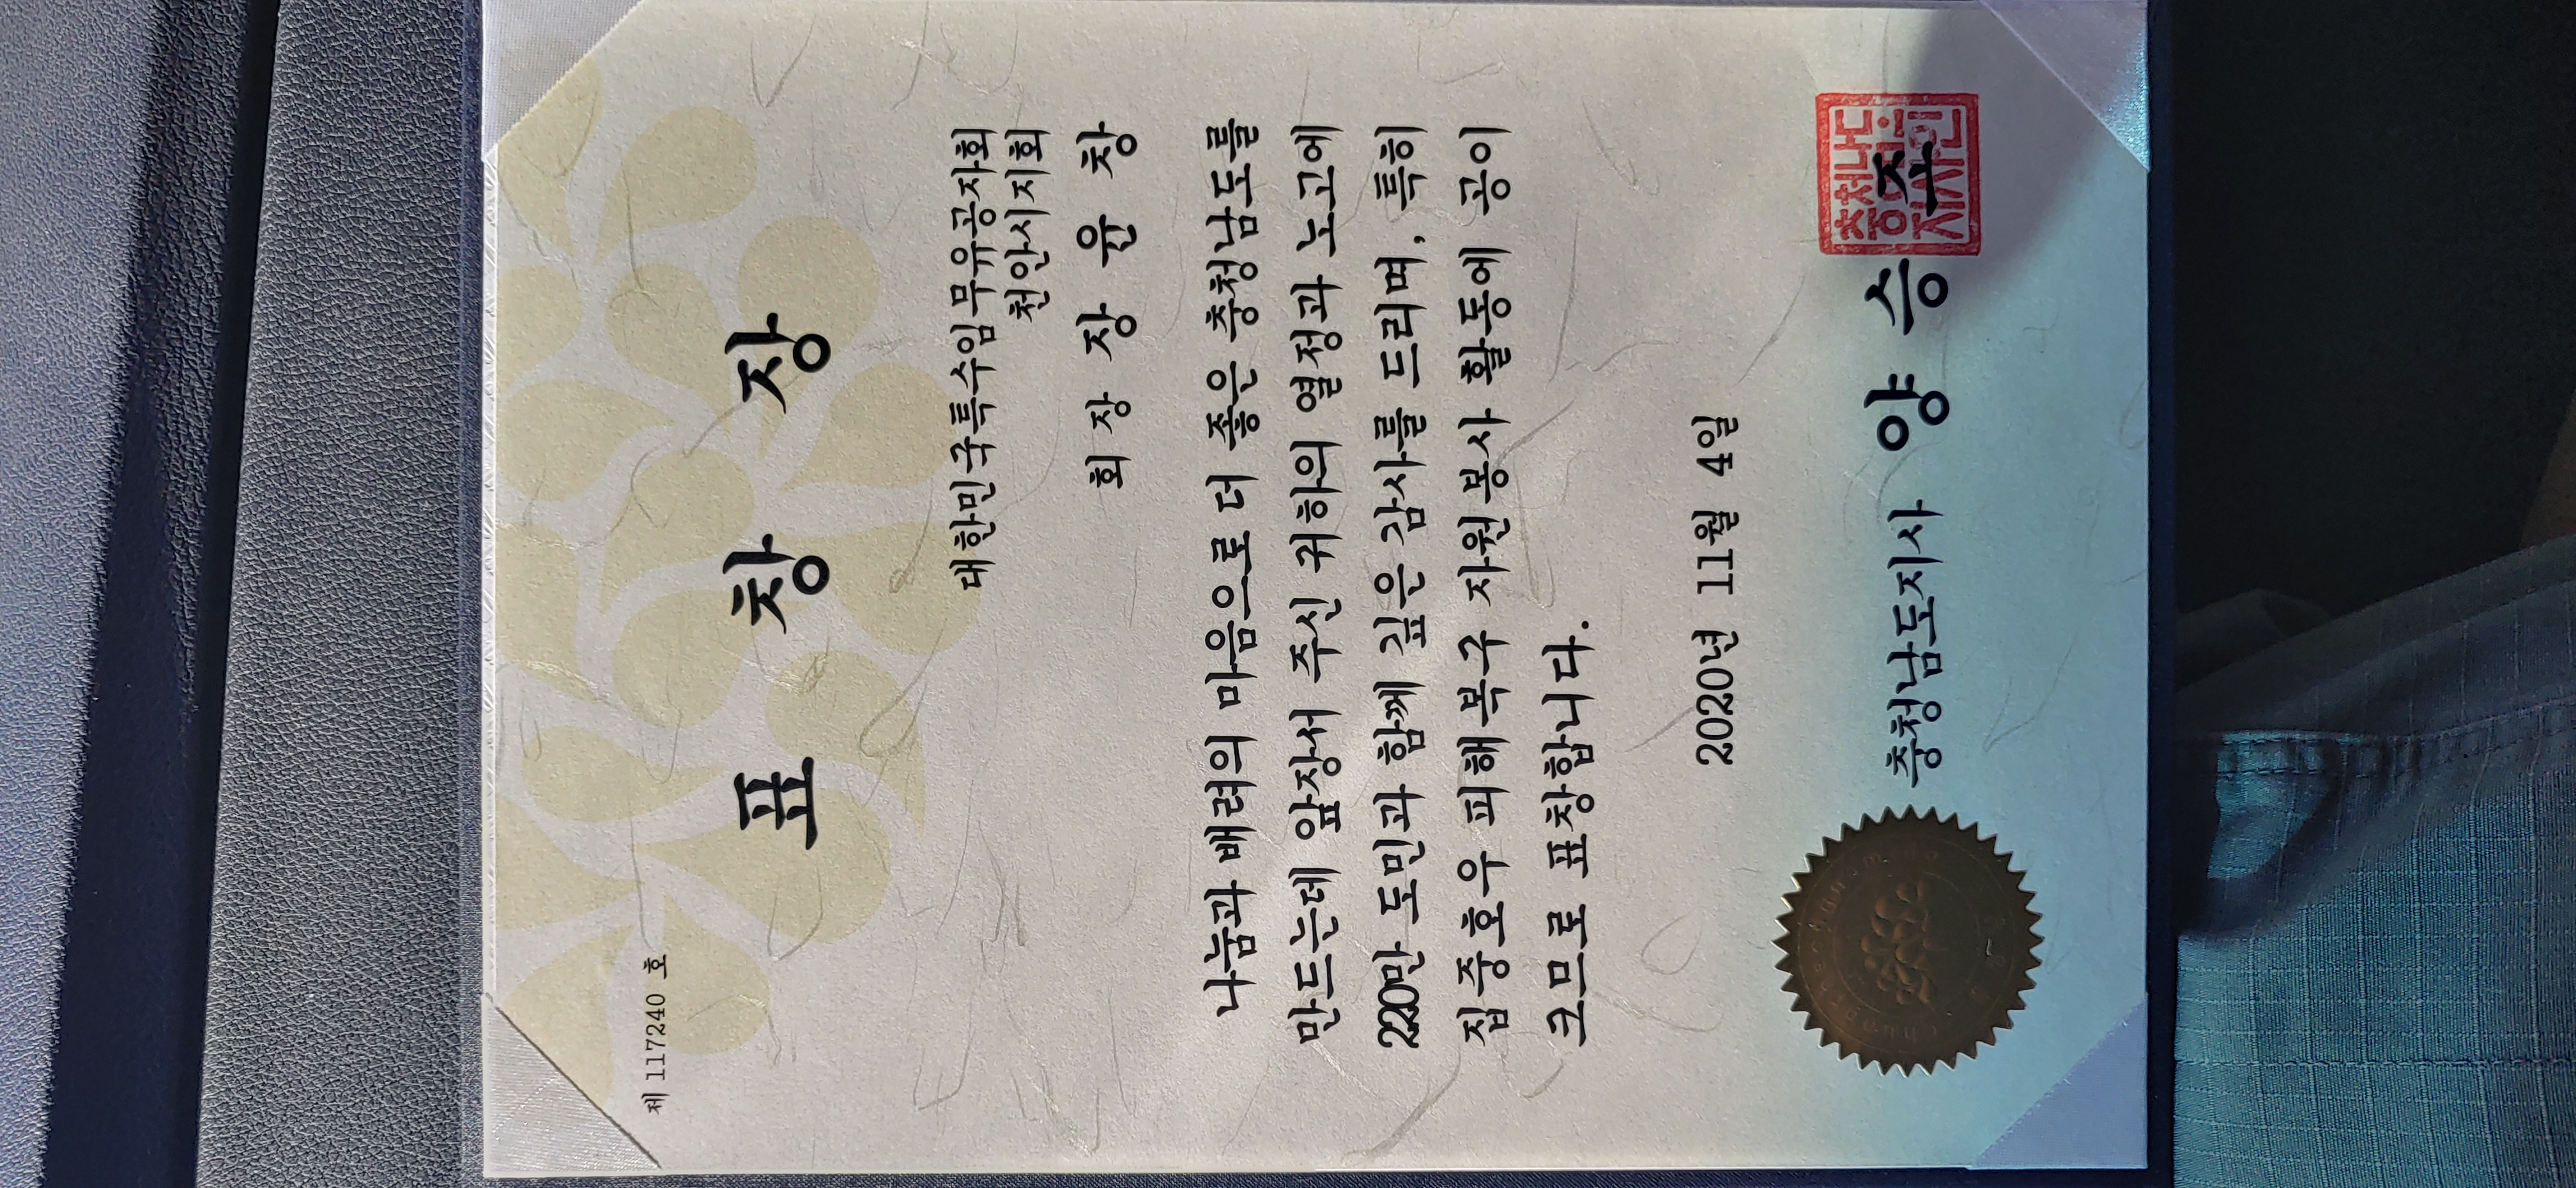 제 117240 호
표 창 장
대한민국특수임무유공자회
천안시지회
회 장 장 윤 창
나눔과 배려의 마음으로 더 좋은 충청남도를
만드는데 앞장서 주신 귀하의 열정과 노고에
220만 도민과 함께 깊은 감사를 드리며, 특히
집중호우 피해복구 자원봉사 활동에 공이
크므로 표창합니다.
2020년 11월 4일
충청남도지사 양 승 조
충청남도
지사인